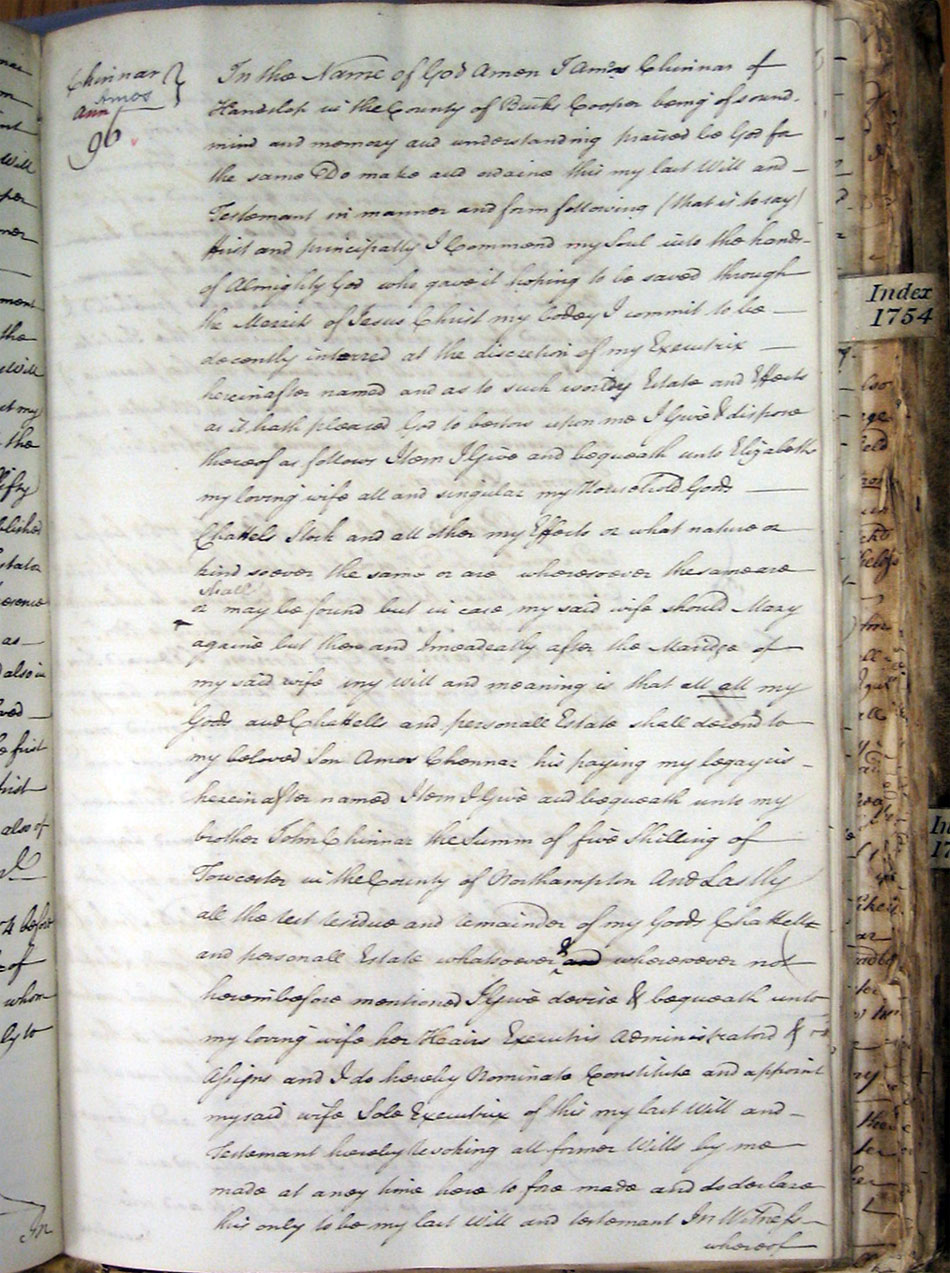 Chinnar
Amos
Ann
96
In the Name of God Amen I Amos Chinnar of
Hanslop in the County of Bucks Cooper being of sound
mind and memory and understanding praised be God for
the same Do make and ordaine this my last Will and
Testemant in manner and form following (that is to say)
first and principally I Commend my Soul into the hands
of Almighty God who gave it hoping to be saved through
the Merrits of Jesus Christ my Bodey I commit to be
decently interred at the discretion of my Executrix
hereinafter named and as to such worldy Estate and Effects
as it hath pleased God to bestow upon me I Give & dispose
thereof as follows Item I Give and bequeath unto Elizabeth
my loving wife all and singular my Household Goods
Chattels Stock and all other my Effects or what nature or
kind soever the same or are wheresoever the same are
shall
or may be found but in case my said wife should Mary
againe but then and Imeadeatly after the Maridge of
my said wife my will and meaning is that all all my
Goods and Chattells and personall Estate shall decend to
my beloved Son Amos Chennar his paying my legaycis
hereinafter named Item I Give and bequeath unto my
brother John Chinnar the Summ of five Shilling of
Towcester in the County of Northampton And Lastly
all the rest residue and remainder of my Goods Chattells
and personall Estate whatsoever & and wheresoever not
hereinbefore mentioned I Give devise & bequeath unto
my loving wife her Heairs Executris Administrators &
Asigns and I do hereby Nominate Constitute and appoint
my said wife Sole Executrix of this my last Will and
Testemant hereby Revoking all former Wills by me
made at aney time here to fore made and do declare
this only to be my last Will and testemant In Witness
whereof
Index
1754